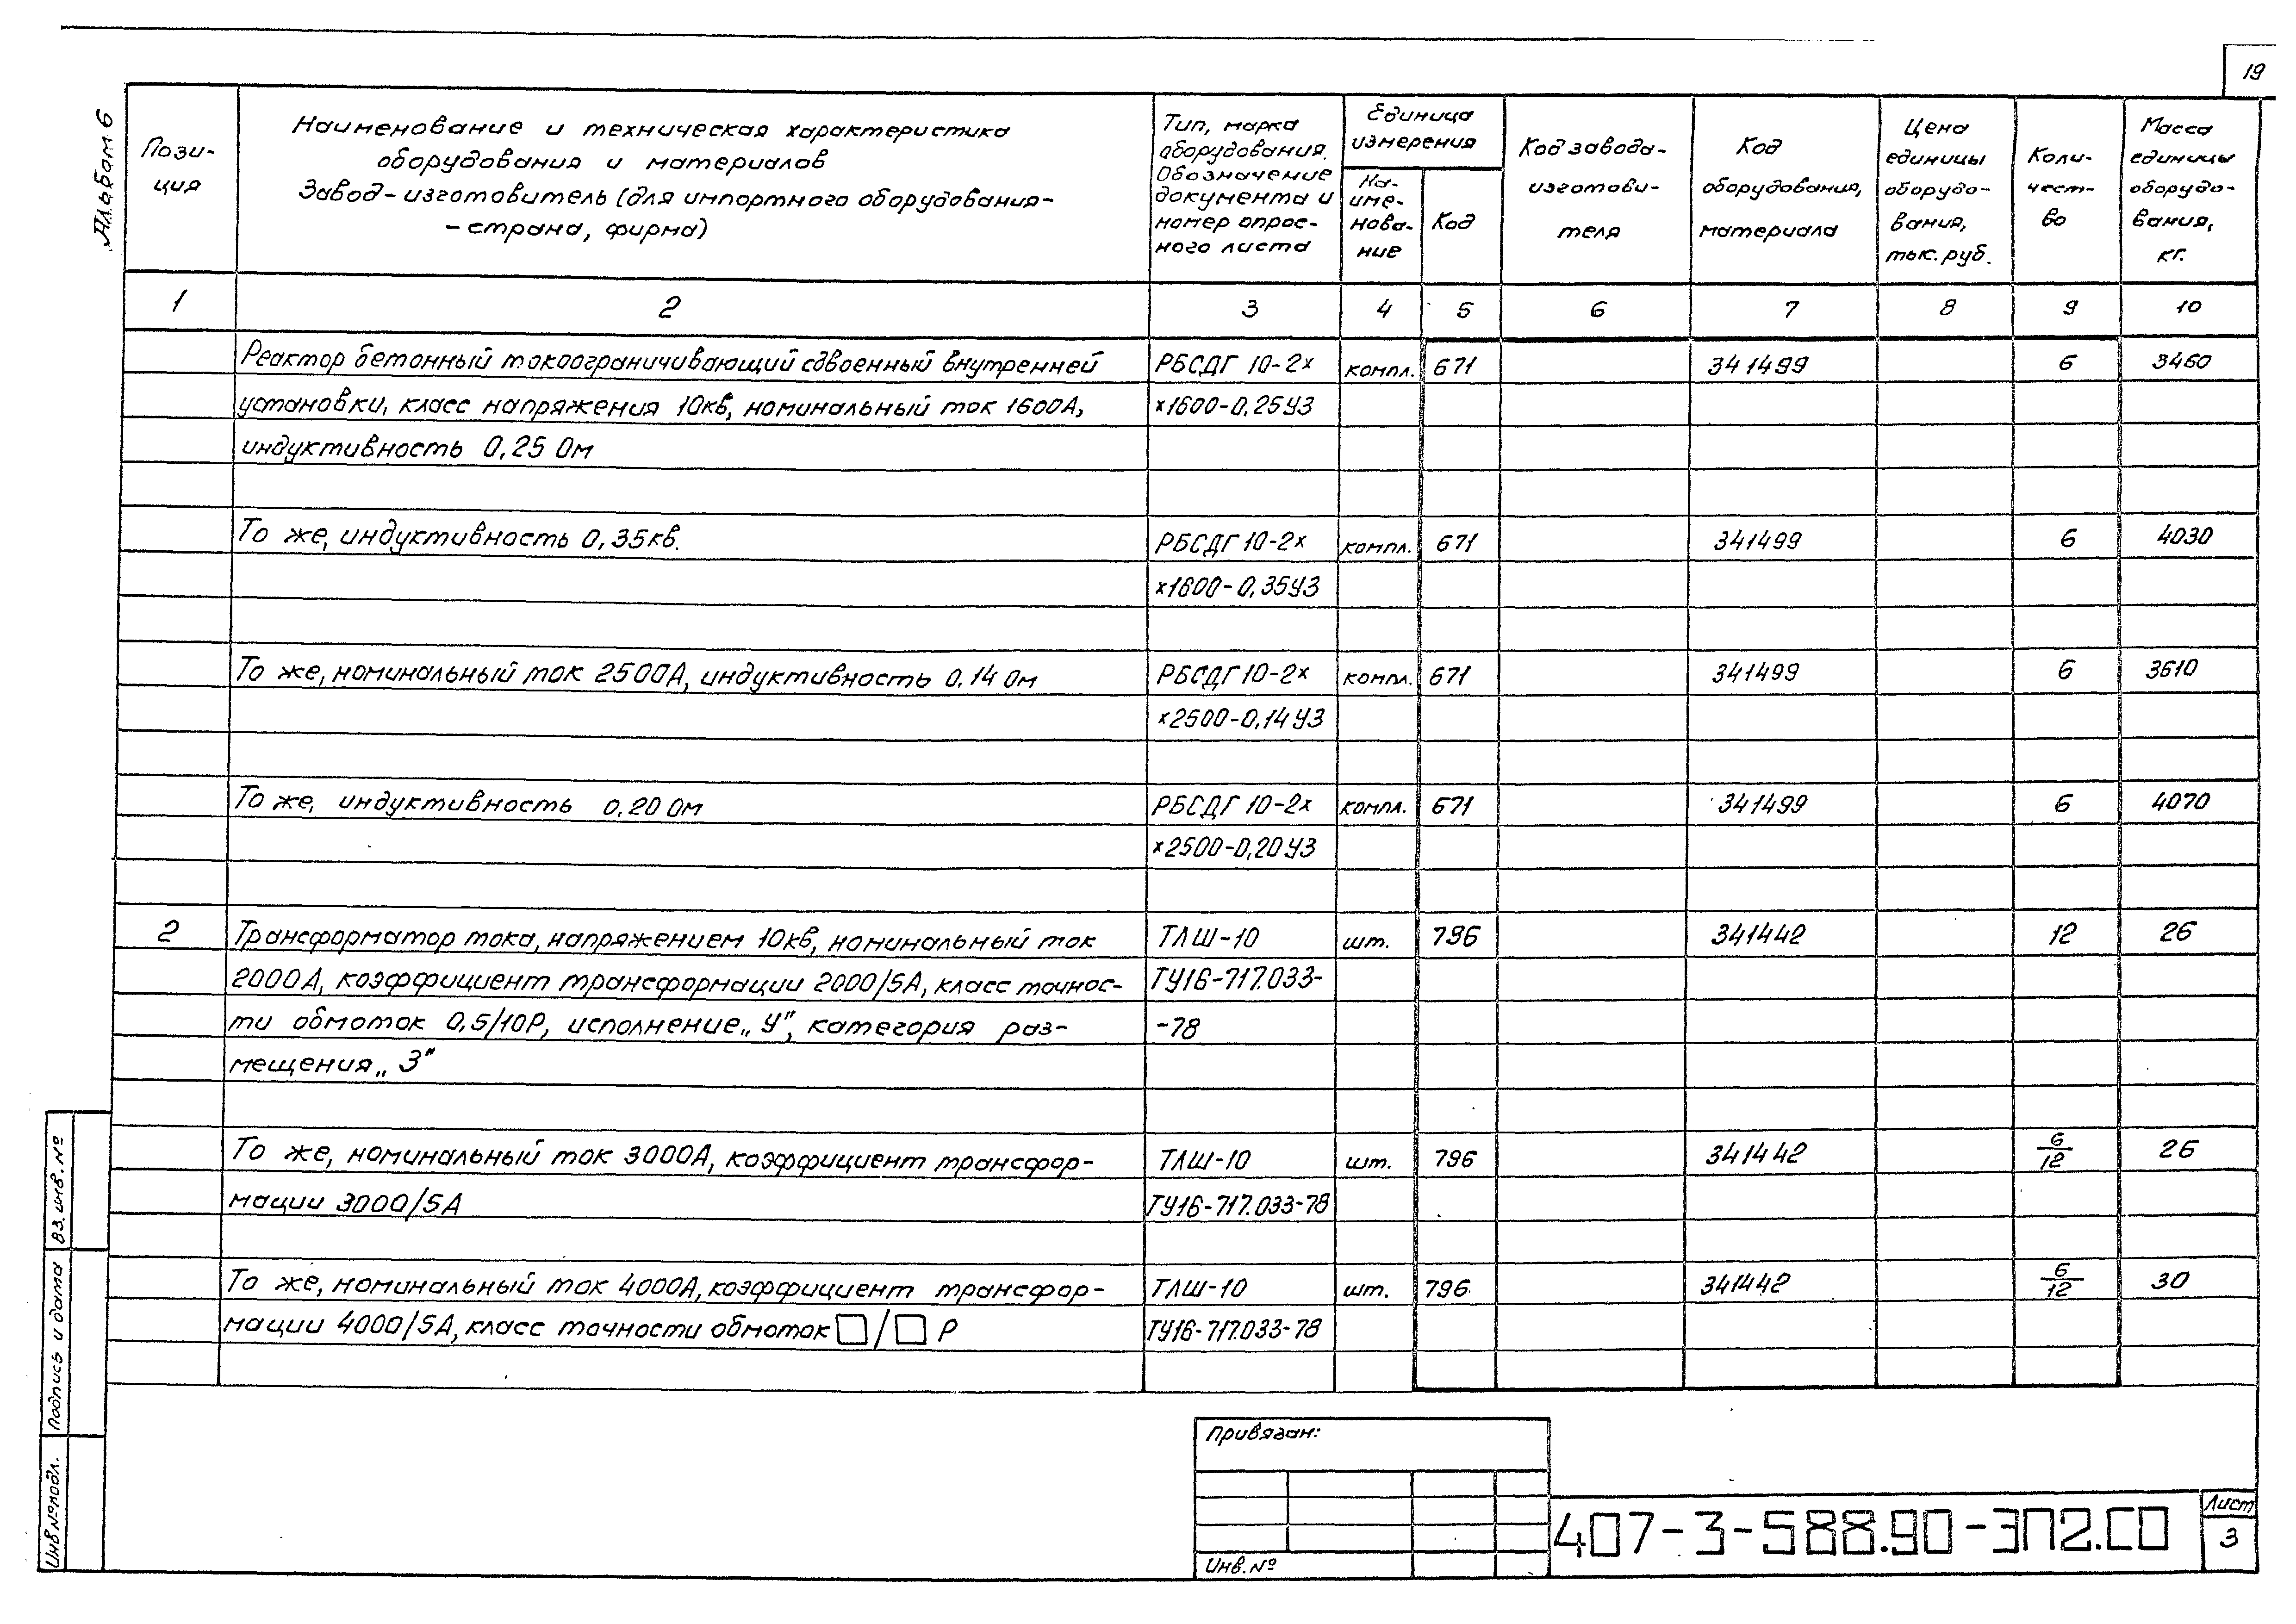 19
Альбом 6
Пози-
ция
Наименование и техническая характеристика
оборудования и материалов
Завод-изготовитель (для импортного оборудования-
-страна, фирма)
Тип, марка
оборудования.
Обозначение
документа и
номер опрос-
ного листа
Единица
измерения
На-
име-
нова-
ние
Код
Код завода-
изготови-
теля
Код
оборудования,
материала
Цена
единицы
оборудо-
вания,
тыс. руб.
Коли-
чест-
во
Масса
единицы
оборудо-
вания,
кг.
1 2 3 4 5 6 7 8 9 10
Реактор бетонный токоограничивающий сдвоенный внутренней РБСДГ 10-2х компл. 671 341499 6 3460
установки, класс напряжения 10кв, номинальный ток 1600А, х1600-0,25У3
индуктивность 0,25 Ом
То же, индуктивность 0,35кв. РБСДГ 10-2х компл. 671 341499 6 4030
х1600-0,35У3
То же, номинальный ток 2500А, индуктивность 0.14 Ом РБСДГ 10-2х компл. 671 341499 6 3610
х2500-0,14У3
То же, индуктивность 0,20 Ом РБСДГ 10-2х компл. 671 341499 6 4070
х2500-0,20У3
2 Трансформатор тока, напряжением 10кв, номинальный ток ТЛШ-10 шт. 796 341442 12 26
2000А, коэффициент трансформации 2000/5А, класс точнос- ТУ16-717.033-
ти обмоток 0,5/10Р, исполнение „У", категория раз- -78
мещения „3"
То же, номинальный ток 3000А, коэффициент трансфор- ТЛШ-10 шт. 796 341442 6/12 26
мации 3000/5А ТУ16-717.033-78
То же, номинальный ток 4000А, коэффициент трансфор- ТЛШ-10 шт. 796 341442 6/12 30
мации 4000/5А, класс точности обмоток □/□ Р ТУ16-717.033-78
Вз. инв. №
Подпись и дата
Инв № подл.
Привязан:
Инв. №
407-3-588.90-ЭП2.СО
Лист
3